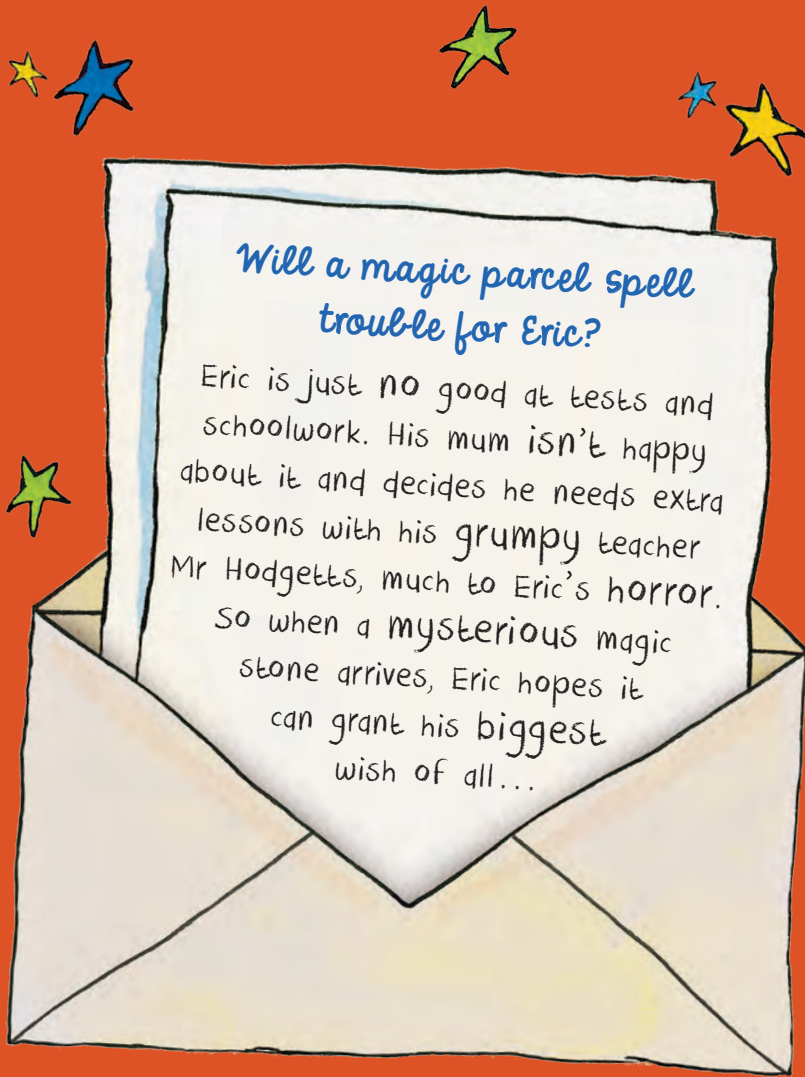 Will a magic parcel spell
trouble for Eric?
Eric is just no good at tests and
schoolwork. His mum isn't happy
about it and decides he needs extra
lessons with his grumpy teacher
Mr Hodgetts, much to Eric's horror.
So when a mysterious magic
stone arrives, Eric hopes it
can grant his biggest
wish of all...